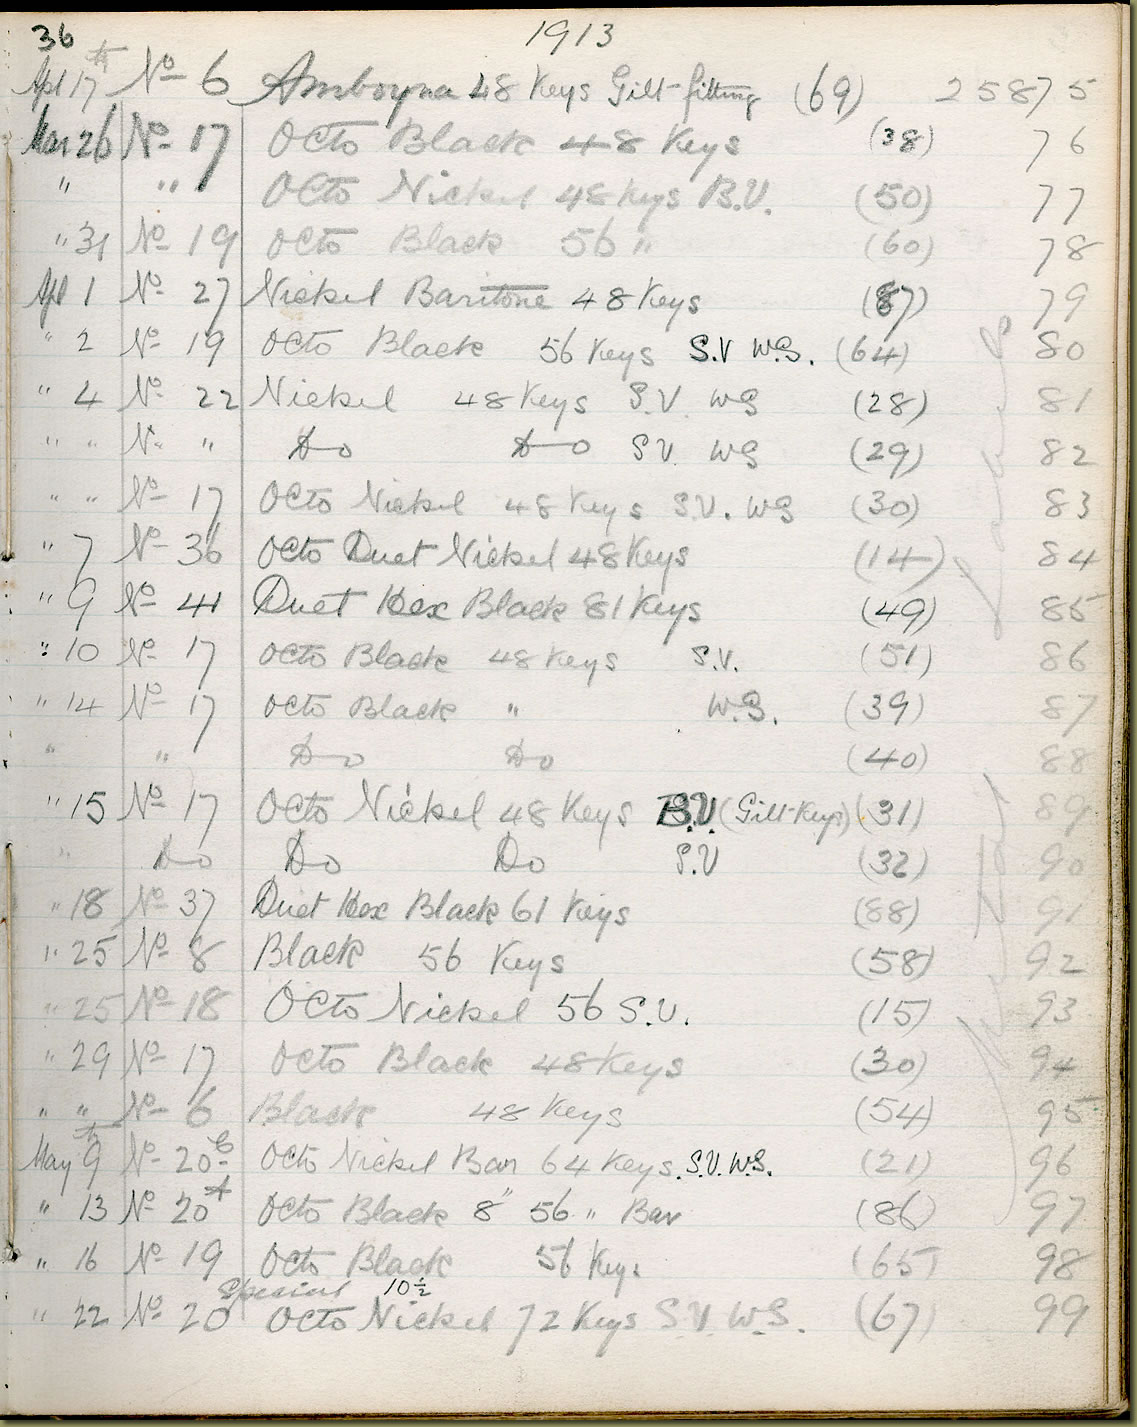 36 1913
Apl 17th No 6 Amboyna 48 Keys Gilt-fitting (69) 25875
Mar 26 No 17 Octo Black 48 Keys (38) 76
" " Octo Nickel 48 Keys B.V. (50) 77
" 31 No 19 Octo Black 56 " (60) 78
Apl 1 No 27 Nickel Baritone 48 Keys (87) 79
" 2 No 19 Octo Black 56 Keys S.V W.S. (64) 80
" 4 No 22 Nickel 48 Keys S.V. WS (28) 81
" " No " Do Do S.V WS (29) 82
" " No 17 Octo Nickel 48 Keys S.V. WS (30) 83
" 7 No 36 Octo Duet Nickel 48 Keys (14) 84
" 9 No 41 Duet Hex Black 81 Keys (49) 85
" 10 No 17 Octo Black 48 Keys S.V. (51) 86
" 14 No 17 Octo Black " W.S. (39) 87
" " Do Do (40) 88
" 15 No 17 Octo Nickel 48 Keys B.V. (Gilt-Keys) (31) 89
" Do Do Do S.V (32) 90
" 18 No 37 Duet Hex Black 61 Keys (88) 91
" 25 No 8 Black 56 Keys (58) 92
" 25 No 18 Octo Nickel 56 S.V. (15) 93
" 29 No 17 Octo Black 48 Keys (30) 94
" " No 6 Black 48 Keys (54) 95
May 9th No 20B Octo Nickel Bar 64 Keys. S.V. W.S. (21) 96
" 13 No 20A Octo Black 8" 56 " Bar (86) 97
" 16 No 19 Octo Black 56 Keys (65) 98
Special 10½
" 22 No 20 Octo Nickel 72 Keys S.V. W.S. (67) 99